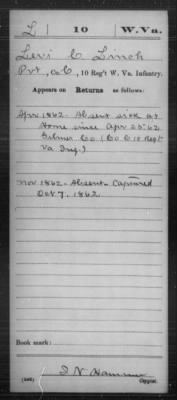 L | 10 | W.Va.
Levi C Linch
Pvt., Co. C, 10 Reg't W. Va. Infantry.
Appears on Returns as follows:
Apr 1862 - Absent sick at
Home since Apr 25 '62
Gilmer Co (Co C 10 Regt
Va Inf.)
Nov 1862 - Absent - Captured
Oct 7, 1862
Book mark:
(546) Copyist.